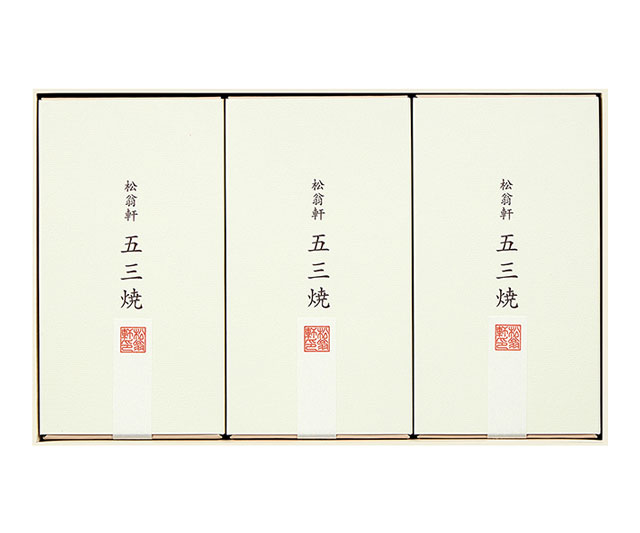 松翁軒
五三焼
松翁軒印
松翁軒
五三焼
松翁軒印
松翁軒
五三焼
松翁軒印